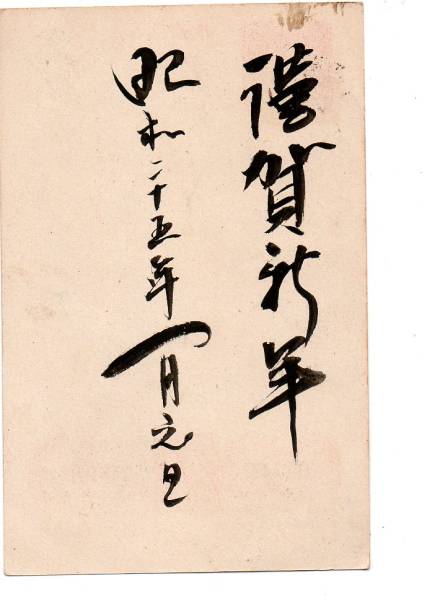 謹賀新年
昭和二十五年一月元旦